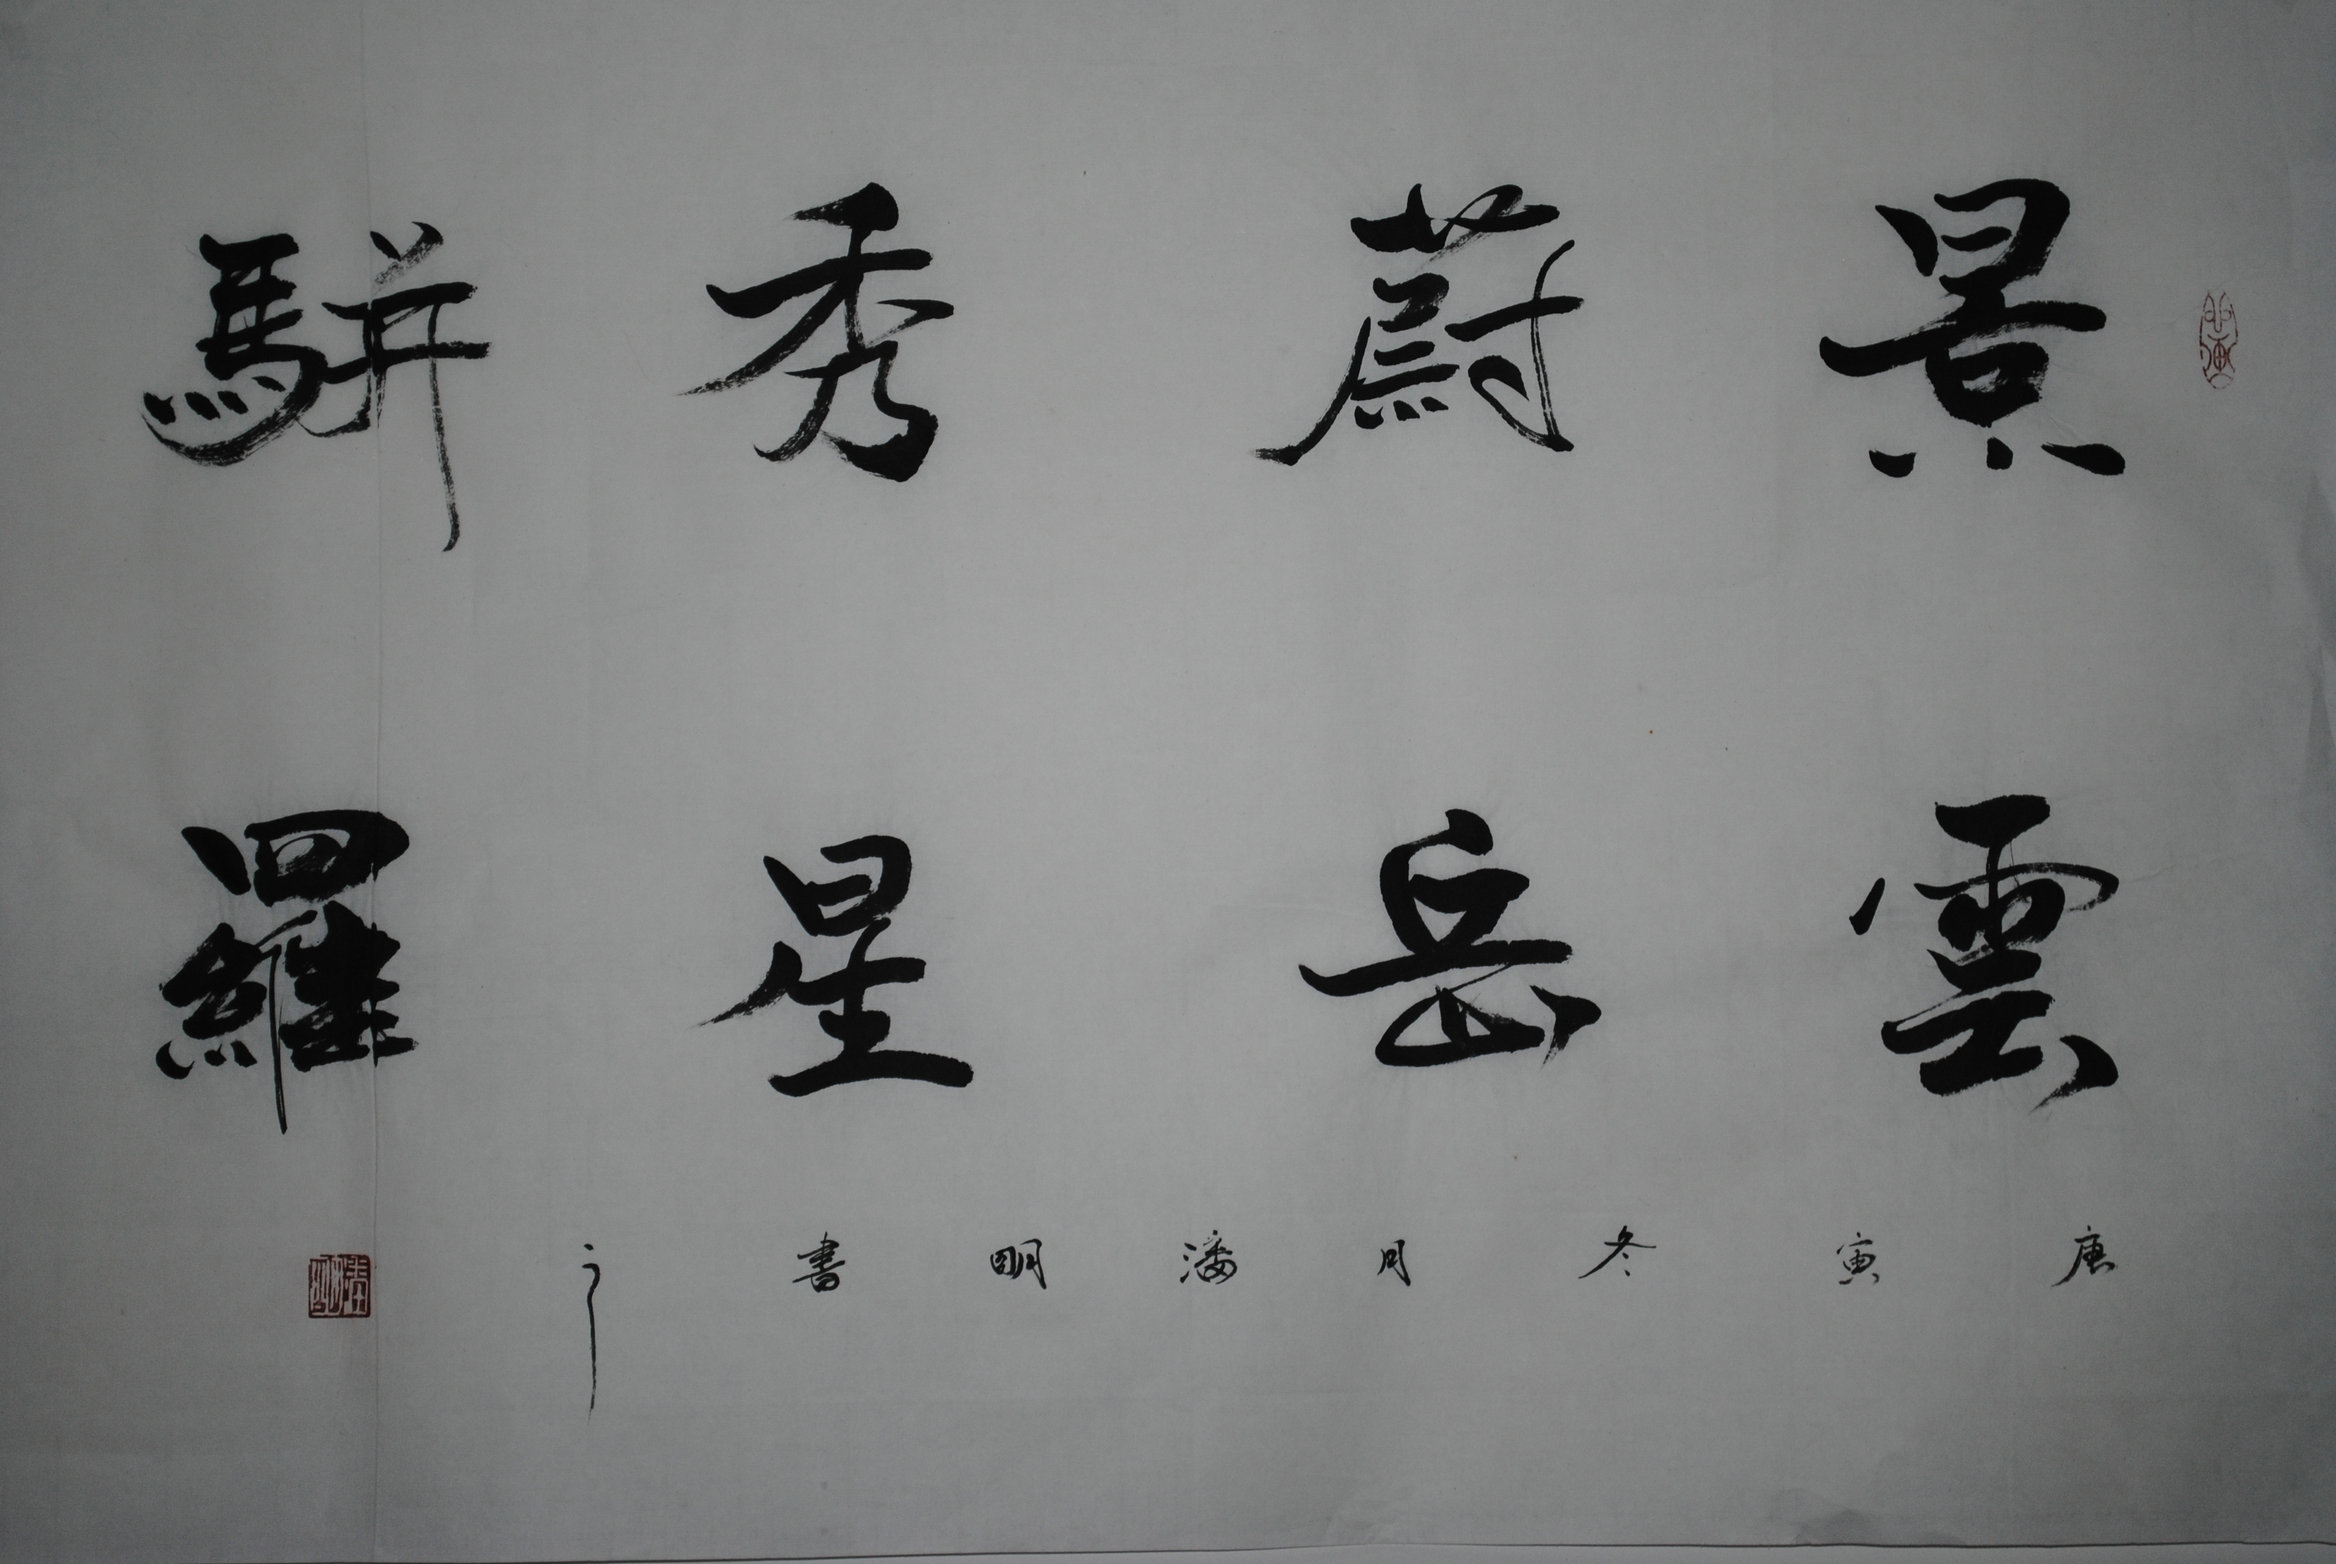 景蔚秀駢
雲岳星羅
庚寅冬月潘明書之